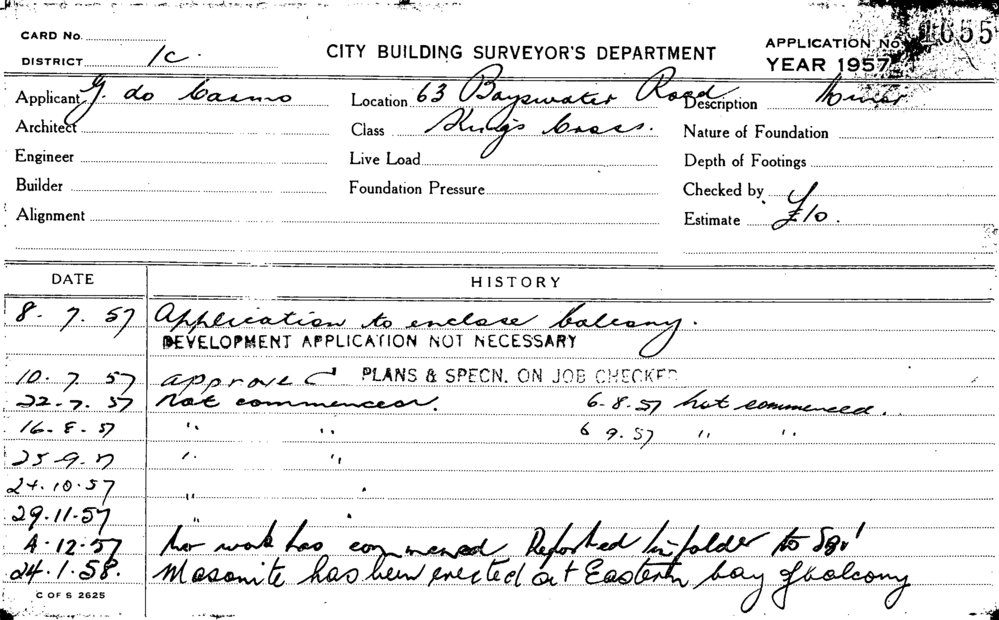 CARD No.
DISTRICT 1C.
CITY BUILDING SURVEYOR'S DEPARTMENT
APPLICATION No. 1655
YEAR 1957
Applicant G. do Carmo Location 63 Bayswater Road Description Minor
Architect Class Kings Cross. Nature of Foundation
Engineer Live Load Depth of Footings
Builder Foundation Pressure Checked by
Alignment Estimate £10.
DATE HISTORY
8. 7. 57 Application to enclose balcony.
DEVELOPMENT APPLICATION NOT NECESSARY
10. 7. 57 approved PLANS & SPECN. ON JOB CHECKED
22. 7. 57 not commenced. 6-8.57 not commenced.
16-8-57 " " 6 9.57 " "
25-9-57 " "
24.10.57 " "
29.11.57 " "
4.12.57 No work has commenced Reported in folder to
24.1.58. Masonite has been erected at Eastern bay of balcony
C OF S 2625